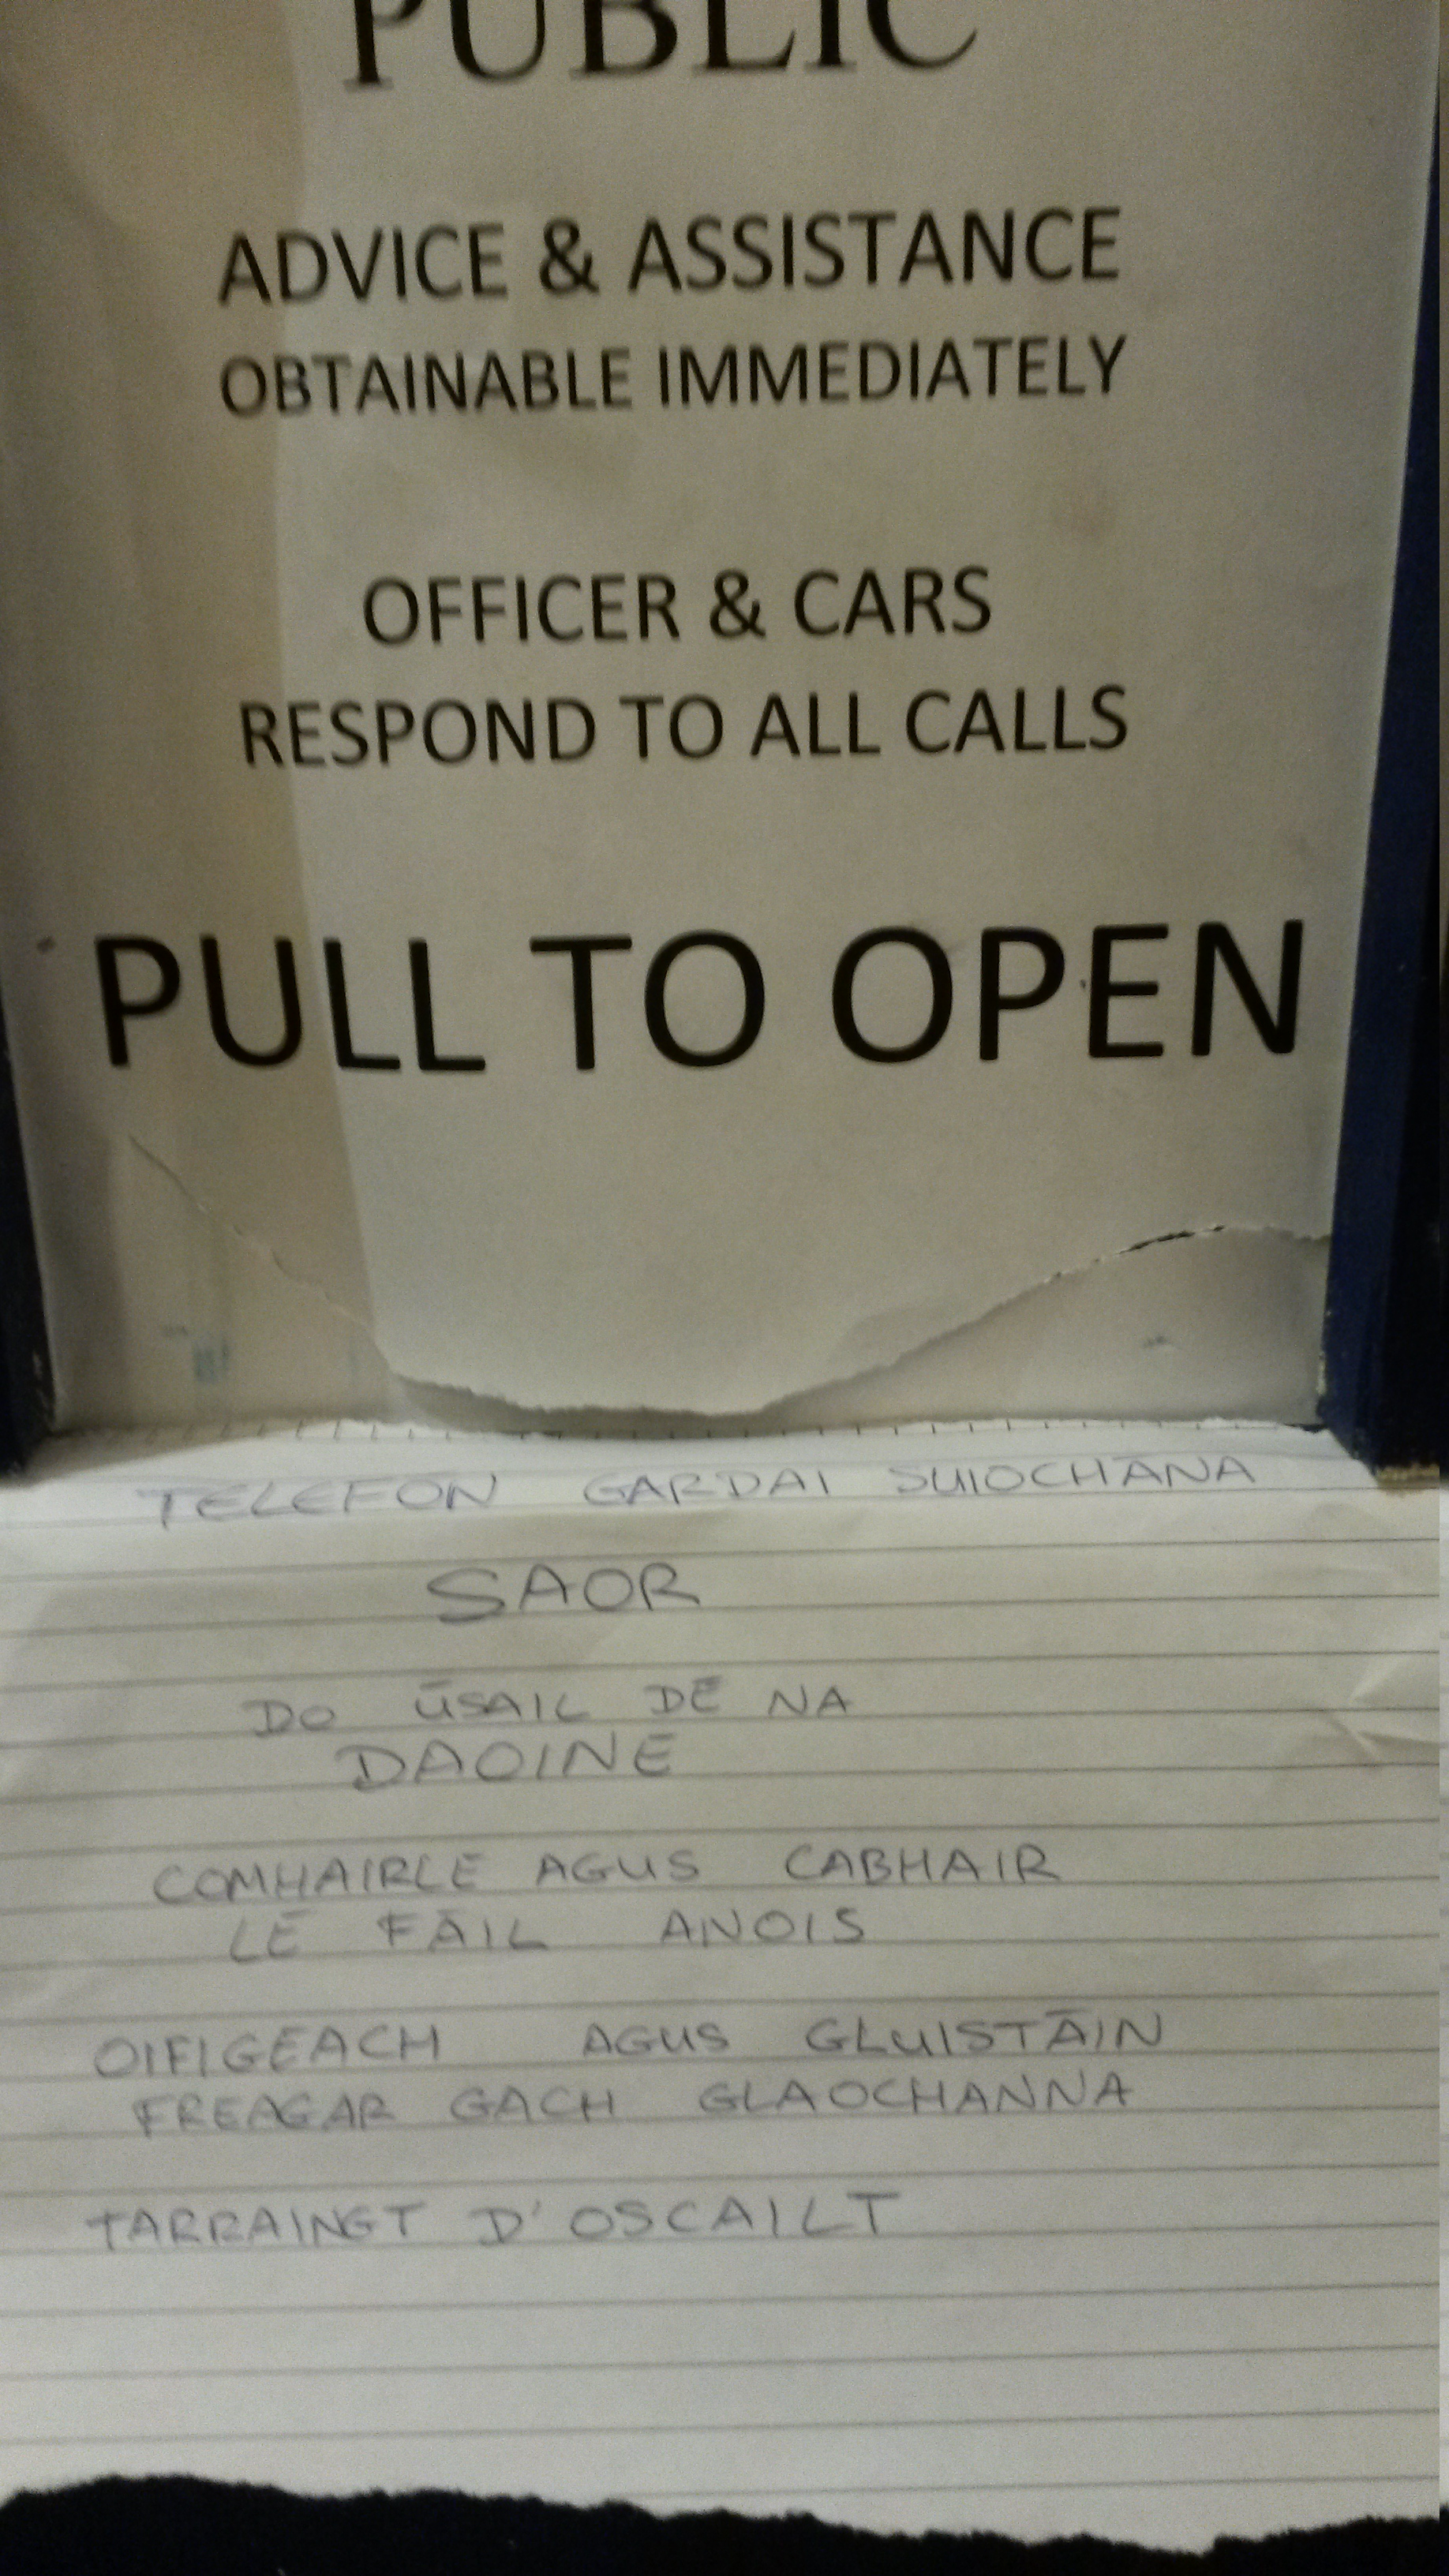 PUBLIC
ADVICE & ASSISTANCE
OBTAINABLE IMMEDIATELY
OFFICER & CARS
RESPOND TO ALL CALLS
PULL TO OPEN
TELEFÓN GARDAI SUIOCHĀNA
SAOR
DO ŪSAIL DĒ NA
DAOINE
COMHAIRLE AGUS CABHAIR
LĒ FĀIL ANOIS
OIFIGEACH AGUS GLUISTĀIN
FREAGAR GACH GLAOCHANNA
TARRAINGT D'OSCAILT